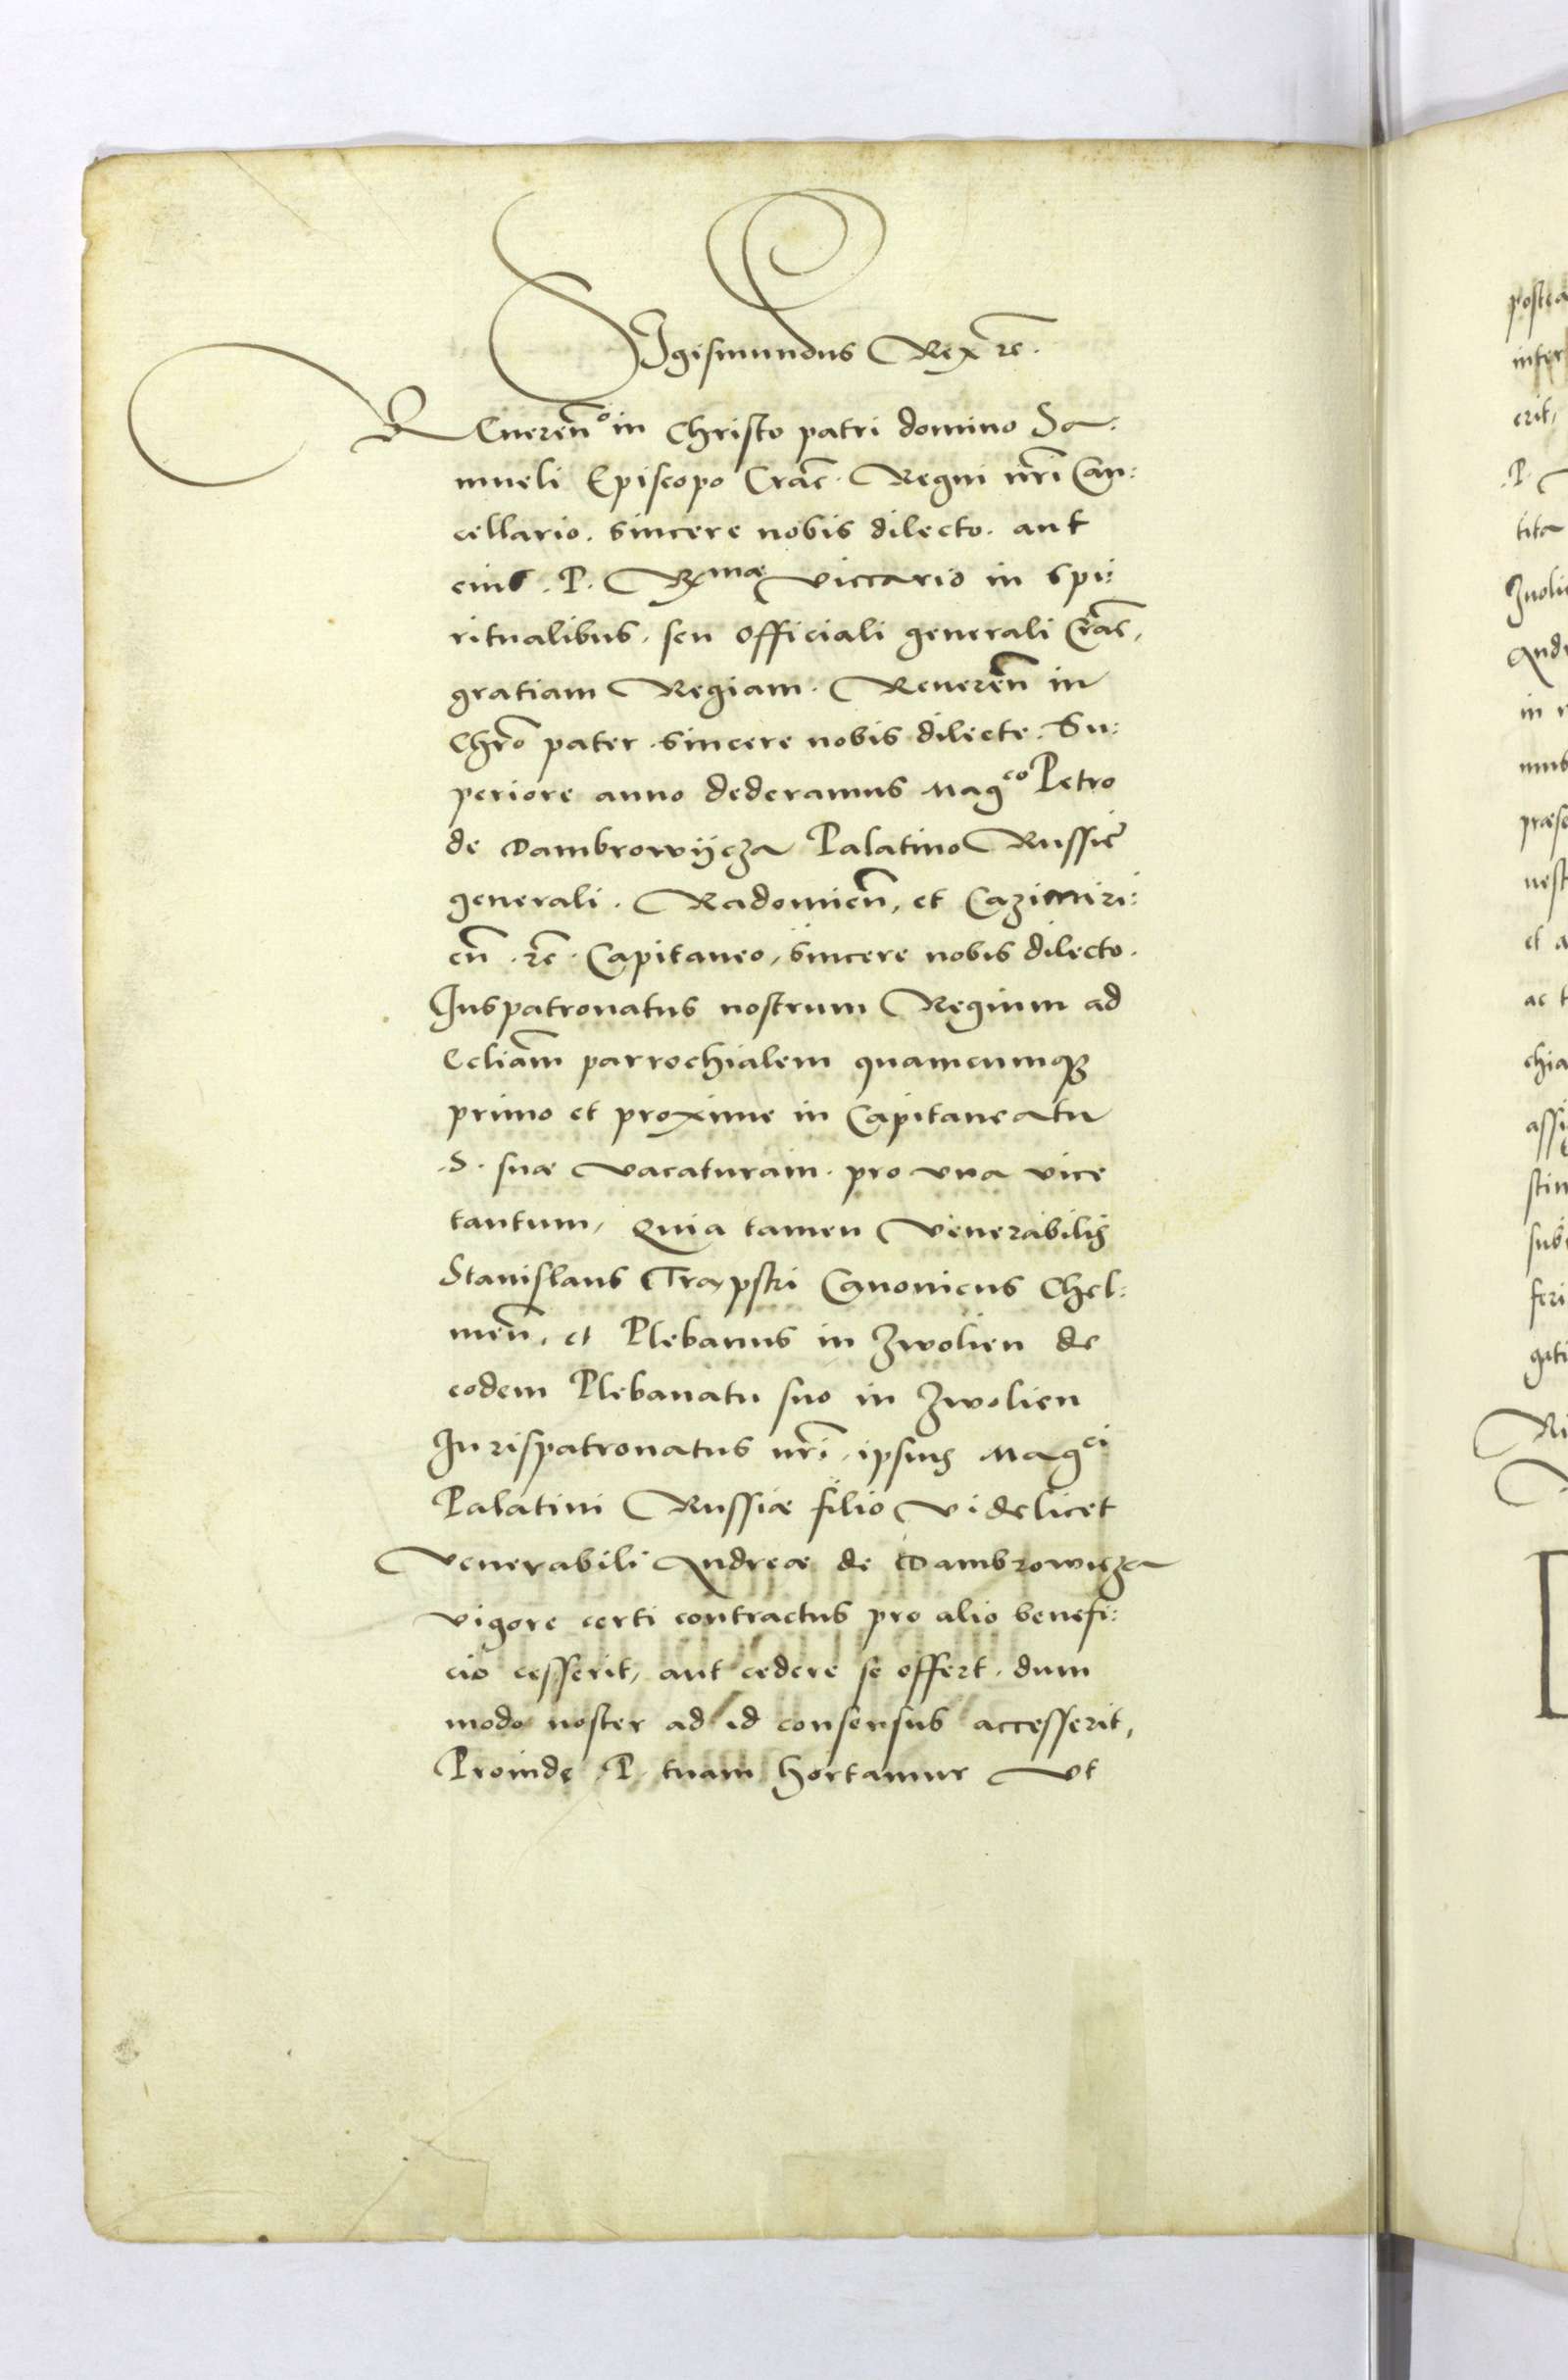 SIgismundus Rex ꝛc̄.
REuerenn̄º in Christo patri domino Sa:
mueli Episcopo Crac̄. Regni nr̄i Can:
cellario. sincere nobis dilecto. aut
eius .P. Rᵐᵃᵉ Viccario in spi:
ritualibus. seu officiali generali Crac̄,
gratiam Regiam. Reueren̄ in
Chrō pater. sincere nobis dilecte. Su:
periore anno dederamus Magᶜᵒ Petro
de Dambrowijcza Palatino Russie
generali. Radomien̄, et Cazimiri:
en̄ .ꝛc̄. Capitaneo, sincere nobis dilecto.
Iuspatronatus nostrum Regium ad
Ccliam̄ parrochialem quamcumqꝫ
primo et proxime in Capitaneatu
.S. suæ vacaturam. pro vna vice
tantum, Quia tamen Venerabilis
Stanislaus Trapski Canonicus Chel:
men̄, et Plebanus in Zwolien de
eodem Plebanatu suo in Zwolien
Iurispatronatus nr̄i, ipsius Magᶜⁱ
Palatini Russiæ filio videlicet
Venerabili Andreæ de Dambrowicza
vigore certi contractus pro alio benefi:
cio cesserit, aut cedere se offert. dum
modo noster ad id consensus accesserit,
Proinde .P. tuam hortamur Vt
postea
inter
erit,
.P.
tita
Zwoli
Andr
in
præse
et a
ac t
chia
assi
stin
sub
feri